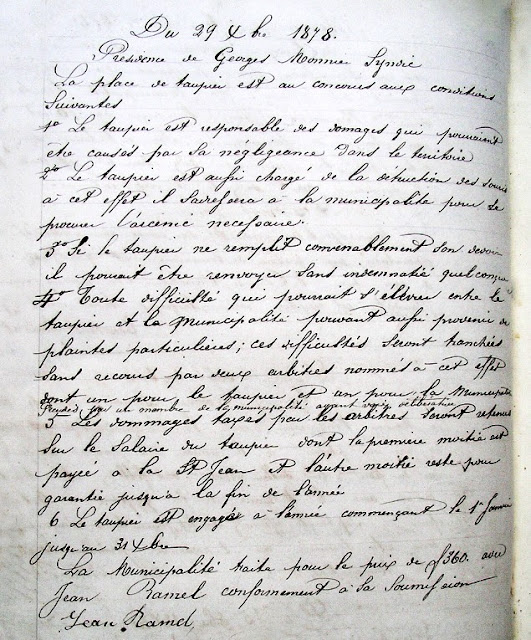 Du 29 Xbre 1878.
Présidence de Georges Monnier Syndic
La place de taupier est au concours aux conditions
Suivantes
1º Le taupier est responsable des domages qui pouraient
être causés par sa négligeance dans le territoire
2º Le taupier est aussi chargé de la détruction des souris
à cet effet il s'adressera à la municipalité pour se
procurer l'arcenic necessaire.
3º Si le taupier ne remplit convenablement son devoir
il pourait être renvoyer sans indemnatié quelconque
4º Toute difficulté qui pourrait s'élévrer entre le
taupier et la Municipalité pouvant aussi provenir de
plaintes particulieres; ces difficultés seront tranchées
sans recours par deux arbitres nommés à cet effet
dont un pour le taupier et un pour la Municipalité
par un membre de la municipalité ayant voix délibérative
5 Les dommages taxés par les arbitres seront retenus
sur le Salaire du taupier dont la première moitié est
payée à la St Jean et l'autre moitié reste pour
garantie jusqu'à la fin de l'année
6 Le taupier est engagé à l'année commençant le 1r Janvier
jusqu'au 31 Xbre
La Municipalité traite pour le prix de f360. avec
Jean Ramel conformement à sa Soumission
Jean Ramel